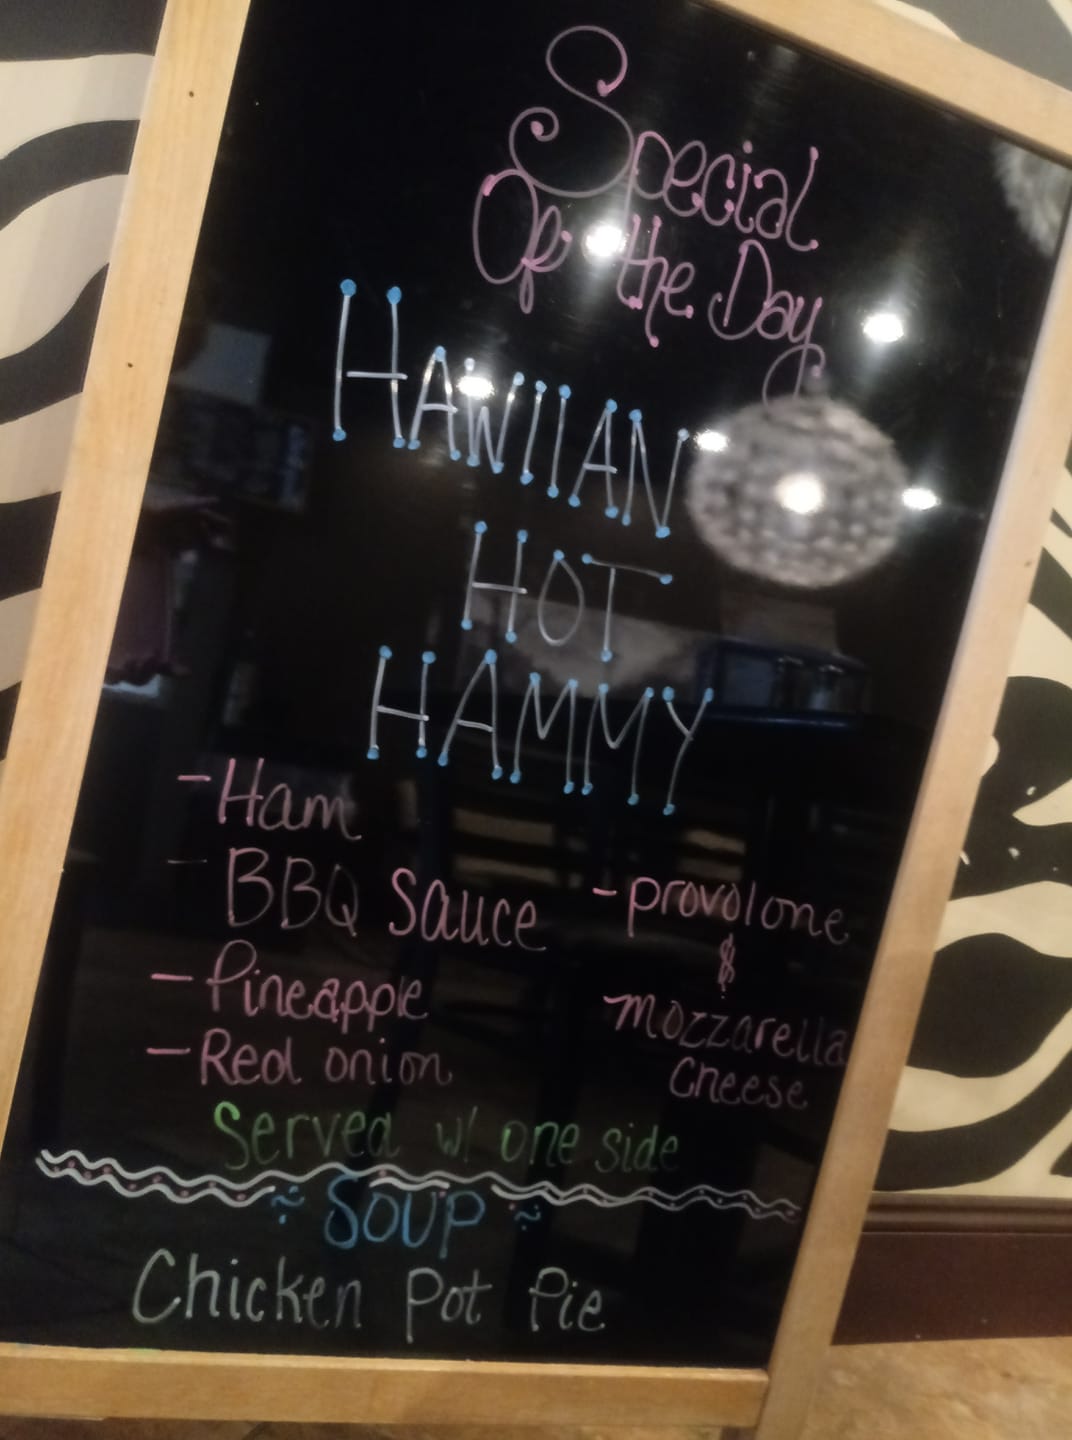 Special
Of the Day
HAWIIAN
HOT
HAMMY
- Ham
- BBQ Sauce
- Pineapple
- Red onion
- provolone
&
mozzarella
cheese
Served w/ one side
~ SOUP ~
Chicken Pot Pie